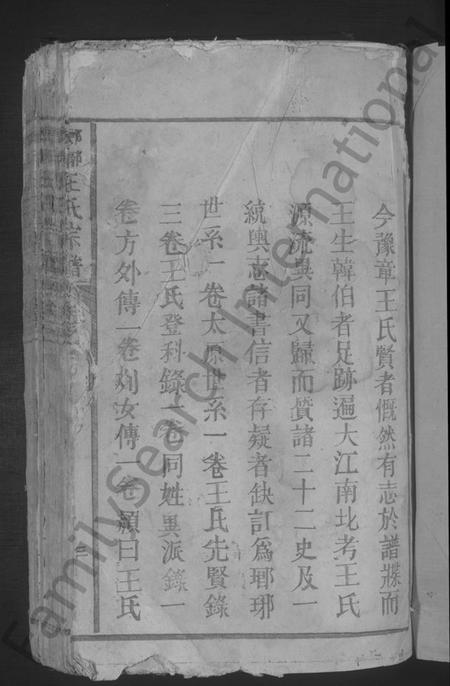 今豫章王氏賢者慨然有志於譜牒而
王生韓伯者足跡遍大江南北考王氏
源流異同又歸而質諸二十二史及一
統輿志諸書信者存疑者缺訂為瑯琊
世系一卷太原世系一卷王氏先賢錄
三卷王氏登科錄一卷同姓異派錄一
卷方外傳一卷列女傳一卷顏曰王氏
王氏宗譜
三
FamilySearch International